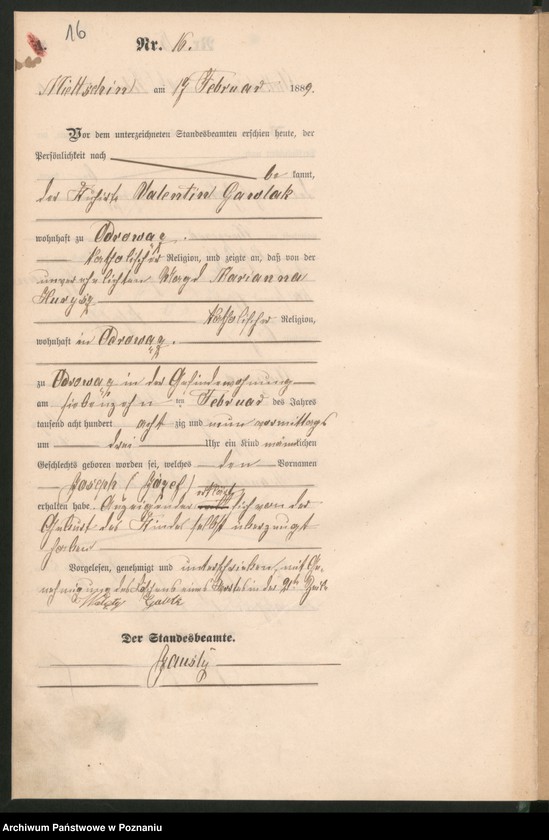 16
A.
Nr. 16.
Miettschin am 19 Februar 1889.
Vor dem unterzeichneten Standesbeamten erschien heute, der
Persönlichkeit nach
be kannt,
der Valentin Gawlak
wohnhaft zu Odrowąz.
katholischer Religion, und zeigte an, daß von der
unverehelichten Magd Marianna
katholischer Religion,
wohnhaft in Odrowąz.
zu Odrowąz in der Gesindewohnung
am siebenzehn ten Februar des Jahres
tausend acht hundert acht zig und neun vormittags
um drei Uhr ein Kind männlichen
Geschlechts geboren worden sei, welches den Vornamen
Joseph (Józef)
erhalten habe. Anzeigender erklärt sich von der
Geburt des Kindes selbst überzeugt
haben
Vorgelesen, genehmigt und unterschrieben, mit Ge-
nehmigung des Löschens eines Wortes in der 21ten Zeile
Der Standesbeamte.
Archiwum Państwowe w Poznaniu